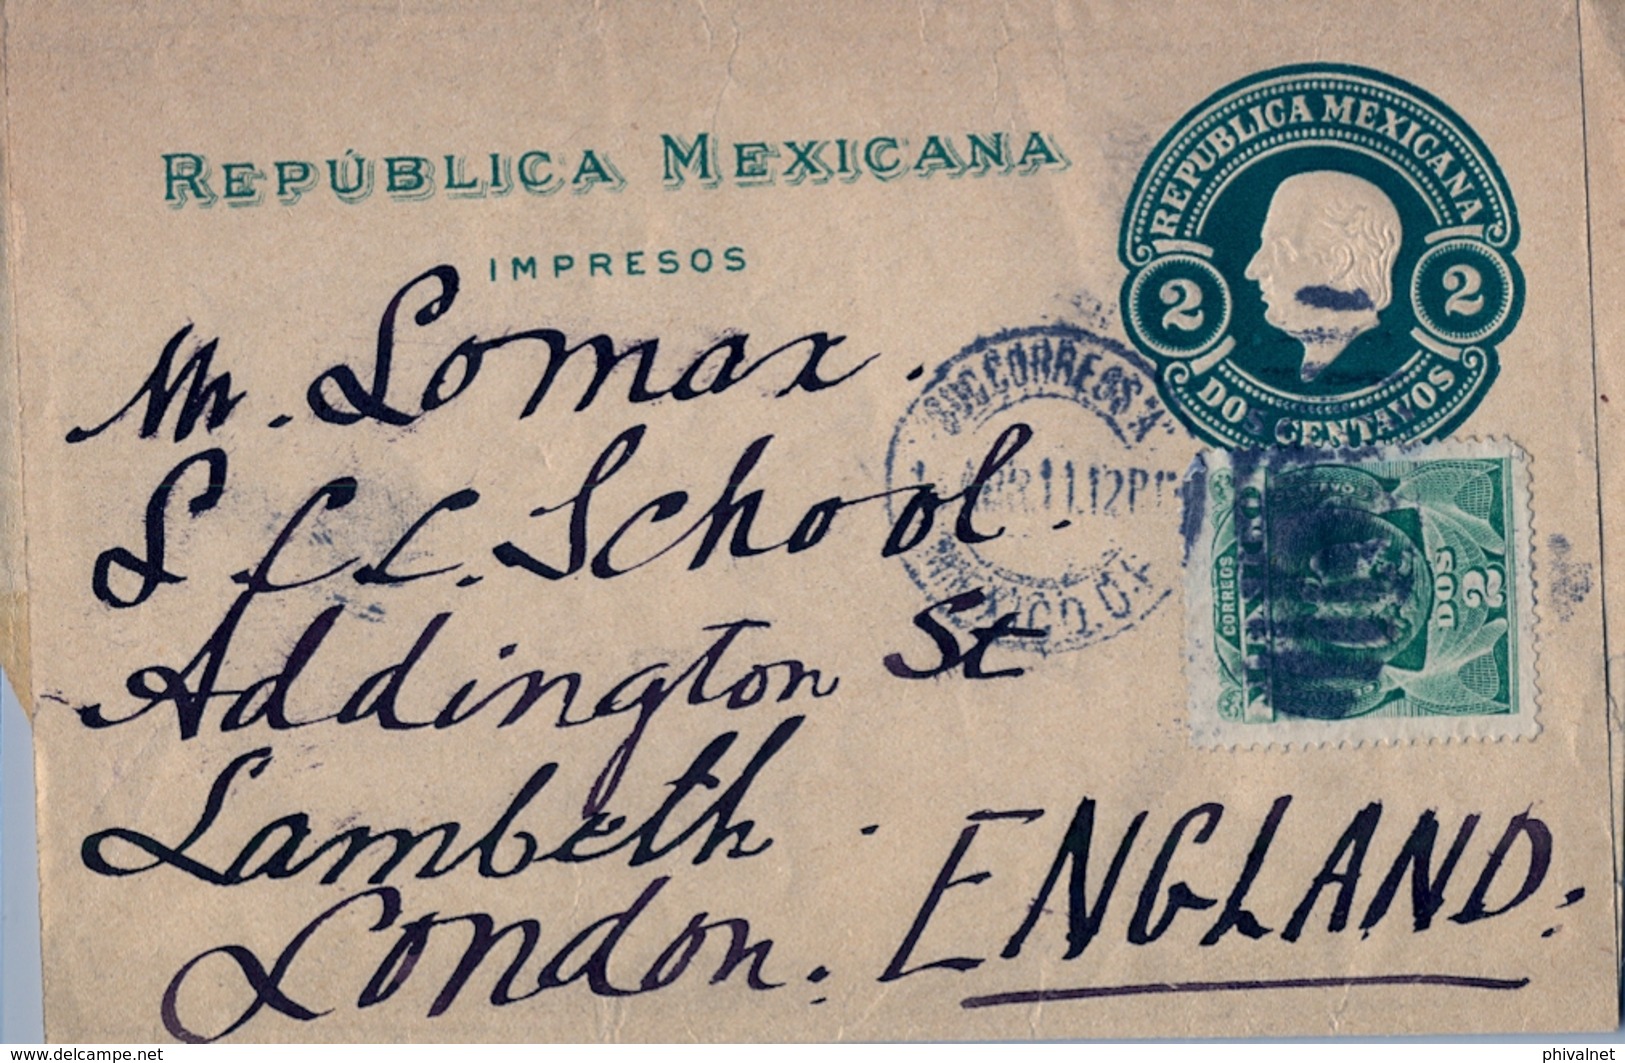 REPÚBLICA MEXICANA
IMPRESOS
REPUBLICA MEXICANA
2 2
DOS CENTAVOS
Mr. Lomax.
L.C.C. School.
Addington St
Lambeth.
London. ENGLAND.
SUC CORREOS "A"
ABR 11.12PM
MEXICO. D.F.
CORREOS
MEXICO
DOS
2
www.delcampe.net
phivalnet